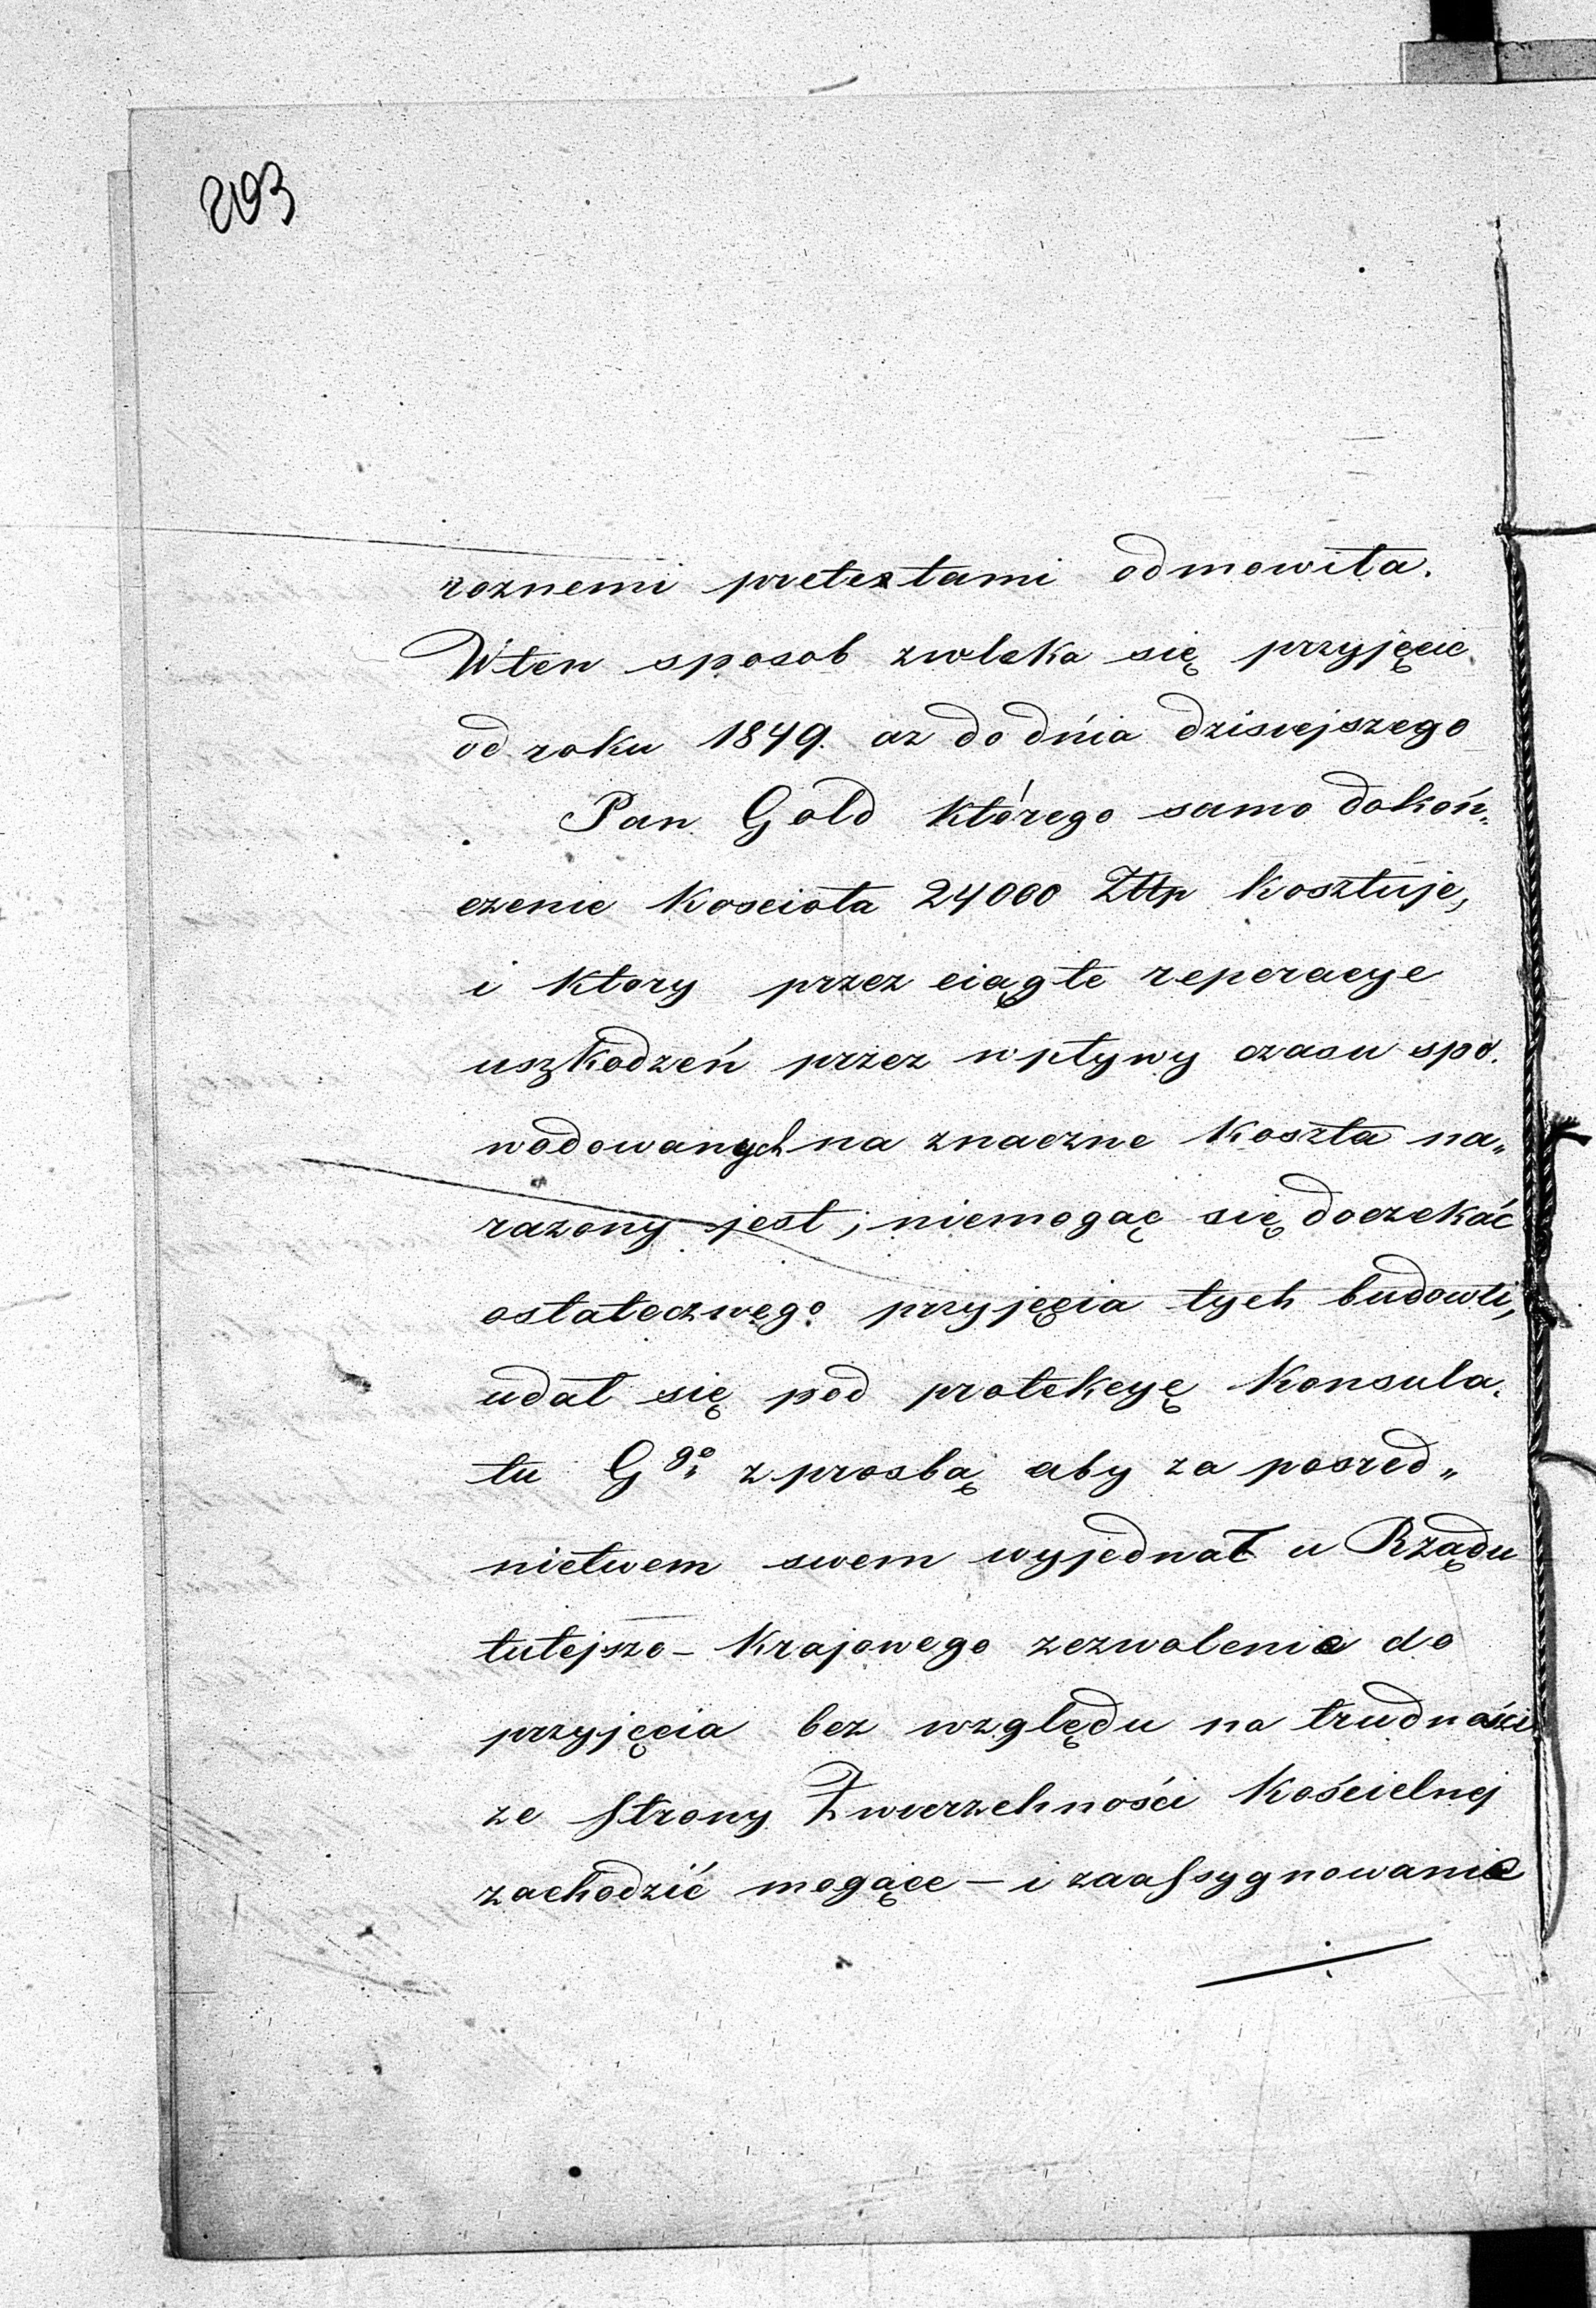 293
roznemi pretextami odmowiła.
W ten sposob zwleka się przyjęcie
od roku 1849. az do dnia dzisiejszego
Pan Gold którego samo dokoń„
czenie Kosciola 24000 Złtp kosztuje,
i ktory przez ciągłe reperacye
uszkodzeń przez wpływy czasu spo.
wodowanych na znaczne koszta na„
razony jest; niemogąc się doczekać
ostatecznego przyjęcia tych budowli,
udał się pod protekcyę Konsula.
tu Ggo. z prosbą aby za posred„
nictwem swem wyjednał u Rządu
tutejszo – Krajowego zezwolenie do
przyjęcia bez względu na trudności
ze strony Zwierzchności Kościelnej
zachodzić mogące – i zaassygnowanie